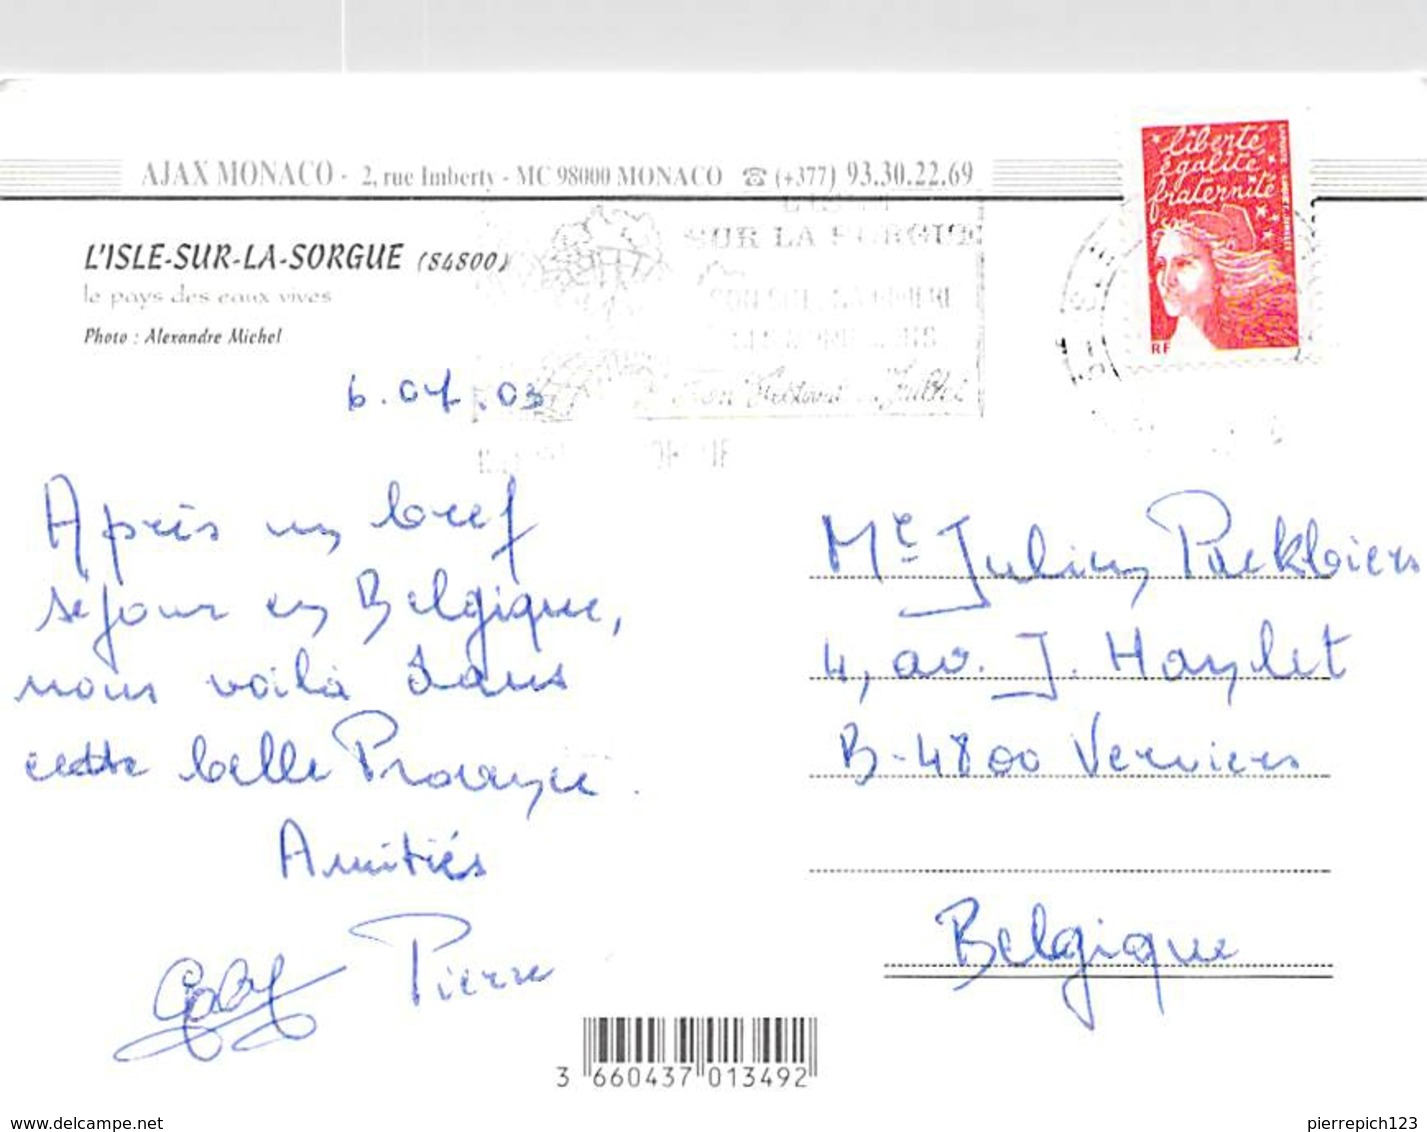 AJAX MONACO - 2, rue Imberty - MC 98000 MONACO ☎ (+377) 93.30.22.69
L'ISLE-SUR-LA-SORGUE (84800)
le pays des eaux vives
Photo : Alexandre Michel
SUR LA SORGUE
liberté
égalité
fraternité
RF
6.07.03
Après un bref
séjour en Belgique,
nous voilà dans
cette belle Provence.
Amitiés
Gaby Pierre
Mr Julien
4, av. J. Haylet
B-4800 Verviers
Belgique
3 660437 013492
www.delcampe.net
pierrepich123